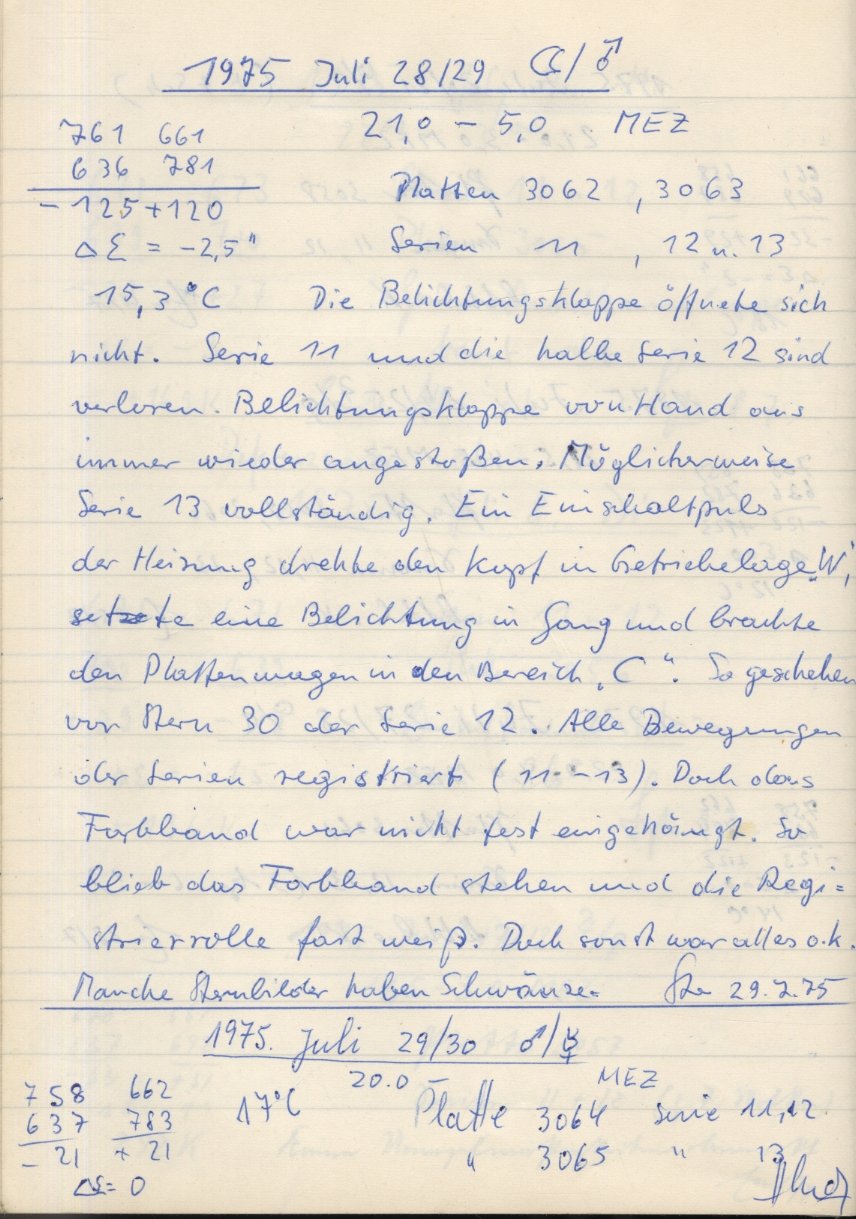 1975 Juli 28/29 ☾/♂
761 661 21,0 – 5,0 MEZ
636 781
- 125 + 120 Platten 3062 , 3063
Δ Σ = -2,5" Serien 11 , 12 u. 13
15,3°C Die Belichtungsklappe öffnete sich
nicht. Serie 11 und die halbe Serie 12 sind
verloren. Belichtungsklappe von Hand aus
immer wieder angestoßen. Möglicherweise
Serie 13 vollständig. Ein Einschaltpuls
der Heizung drehte den Kopf in Getriebelage „W",
setzte eine Belichtung in Gang und brachte
den Plattenwagen in den Bereich „C". So geschehen
vor Stern 30 der Serie 12. Alle Bewegungen
der Serien registriert (11 – 13). Doch das
Farbband war nicht fest eingehängt. So
blieb das Farbband stehen und die Regi=
strierrolle fast weiß. Doch sonst war alles o.k.
Manche Sternbilder haben Schwänze. 29.7.75
1975. Juli 29/30 ♂/☿
758 662 17°C 20.0 MEZ
637 783 Platte 3064 Serie 11,12
- 21 + 21 " 3065 " 13
Δ Σ = 0